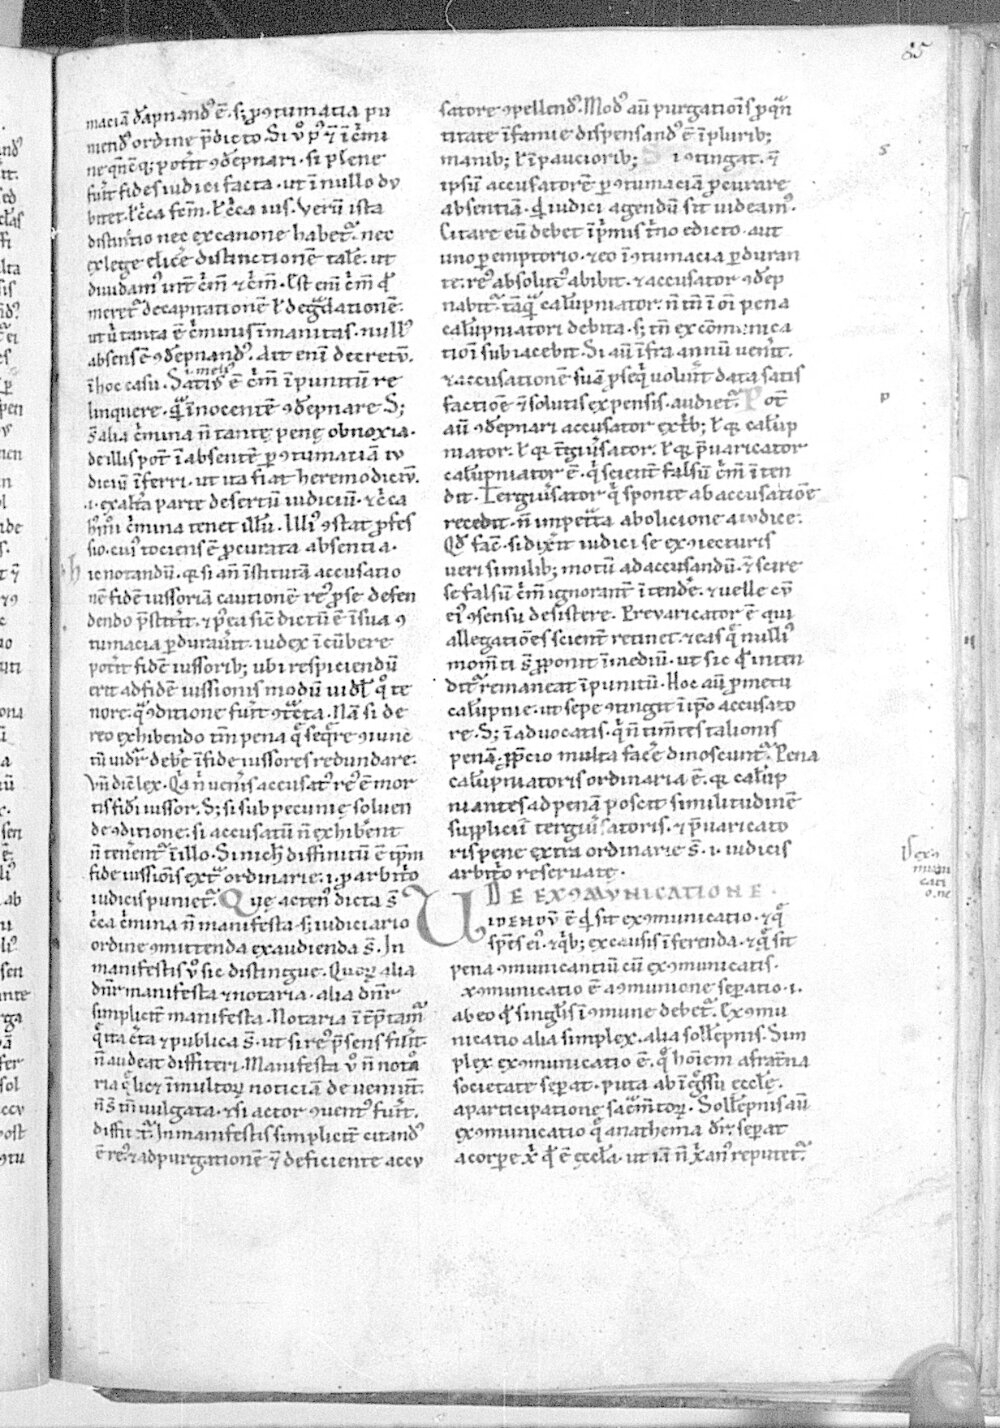 85
maciā dāpnandꝰ ē. sꝫ ꝓ ꝯtumacia pu
niendꝰ ordine p̄dicto. Si ū
ne potīt ꝯdēpnari. si plene
fūit fides iudici facta. ut ī nullo du
bitet. ł cc̄a fcm̄. ł cc̄a ius. Verū ista
distinctio nec ex canone habet᷑. nec
ex lege. elice distinctionē talē. ut
diuidamꝰ
meret᷑ decapitationē ł deg̃dationē.
ut tanta ē c̄minis īmanitas. nullꝰ
absens ē ꝯdēpnandꝰ. Ait enī decretū.
ī hoc casu. Satiꝰ ē c̄m̄ īpunitū re
meliꝰ
linquere. q̄̄ īnocentē ꝯdēpnare. Sꝫ
s̄ alia c̄mina n̄ tantę penę obnoxia.
de illis pot̄ ī absentē ꝑ ꝯtumaciā iu
diciū īferri. ut ita fiat heremodiciū.
.i. ex alt̄a parte desertū iudiciū. ⁊ cc̄a
c̄mina tenet illū. Illiꝰ ꝯstat ꝓfes
sio. cuiꝰ tociens ē ꝓcurata absentia.
hic notandū. qꝫ si an̄ īstitutā accusatio
nē fidēiussoriā cautionē reꝰ ꝓ se defen
dendo p̄stit̄it. ⁊ p̄ea sic dictū ē ī sua ꝯ
tumacia ꝑdurauīt. iudex īcūbere
potīt fidēiussoribꝫ. ubi respiciendū
erit ad fidēiussionis modū
nore. q̄ ꝯditione fuīt ꝯt̄cta. Nā si de
reo exhibendo tm̄ pena q̄ seq̄re ꝯiunc
tū uidr̄ debe ī fideiussores redundare.
Vn̄ dic̄ lex. accusatꝰ reꝰ ē mor
tis fidiiussor. Sꝫ si sub pecunię soluen
de ꝯditione. si accusatū n̄ exhibēnt
n̄ tenent᷑ ī illo. Si nich̄ diffinitū ē
fideiussiōis ext᷑ ordinarie. .i. ꝓ arbit̄o
iudicis puniet᷑. Que acten̄ dicta s̄
cc̄a c̄mina n̄ manifesta. sꝫ iudiciario
ordine ꝯmittenda exaudienda s̄. In
manifestis ū sic distingue. Quoꝝ alia
dn̄r manifesta ⁊ notaria. alia dn̄r
simplicit̄ manifesta. Notaria
q̄ ita c̄ta ⁊ publica s̄. ut si reꝰ p̄sens fūit.
n̄ audeat diffiteri. Manifesta ū n̄ noto
ria q̄ licꝫ ī multoꝝ noticiā deueniūt.
n̄ s̄ tn̄ uulgata. ⁊ si actor ꝯuentꝰ fūit.
diffitet᷑. In manifestis simplicit̄ citandꝰ
ē reꝰ ⁊ ad purgationē ⁊ deficiente accu
satore ꝯpellendꝰ. Modꝰ aū purgatiōis ꝓ q̄n
titate īfamie dispensandꝰ ē ī pluribꝫ
manibꝫ ł ī paucioribꝫ. Si ꝯtingat. ⁊
s
ipsū accusatorē ꝑ ꝯtumaciā ꝓcurare
absentiā. qd̄ iudici agendū sit uideamꝰ.
Citare eū debet īp̄mis t̄no edicto. aut
uno ꝑemptorio. ⁊ eo ī ꝯtumacia ꝑduran
te. reꝰ absolutꝰ abibit. ⁊ accusator ꝯdēp
nabit᷑. tāq̄ calūpniator. n̄ tn̄ ī oī pena
calūpniatori debita. sꝫ tn̄ excōmunica
tioni subiacebit. Si aū īfra annū uenīt.
⁊ accusationē suā ꝓseq̄ uoluīt data satis
factiōe ⁊ solutis expensis. audiet᷑. Pot̄
p
aū ꝯdēpnari accusator ex t̄bꝫ. ł qꝫ calūp
niator. ł qꝫ t̄giūsator. ł qꝫ p̄uaricator
calūpniator ē. q̄ scient̄ falsū c̄m̄ īten
dit. Tergiūsator q̄ sponte ab accusatiōe
recedit. n̄ impet̄ta abolicione a iudice.
Qd̄ fac̄. si dix̄it iudici se ex ꝯiecturis
ueri similibꝫ motū ad accusandū. ⁊ scire
se falsū c̄m̄ ignorant̄ ītendē. ⁊ uelle cū
eiꝰ ꝯsensu desistere. Preuaricator ē qui
allegatiōes scient̄ retinet. ⁊ eas q̄ nulliꝰ
mom̄ti s̄ ꝓponit ī mediū. ut sic qd̄ inten
dit᷑ remaneat īpunitū. Hoc aū ꝓ metu
calūpnie. ut sepe ꝯtingit ī ip̄o accusato
re. Sꝫ ī aduocatis. q̄ n̄ tim̄tes talionis
penā. p̄cio multa facē dinoscunt᷑. Pena
calūpniatoris ordinaria ē. qꝫ calūp
niantes ad penā poscit similitudinē
supplicii tergiūsatoris. ⁊ p̄uaricato
ris pene extra ordinarie s̄. .i. iudicis
arbit̄o reseruate.
DE EXꝯMVNICATIONE.
D exꝯ
muni
cati
o.ne
UIDENDV̄ ē qd̄ sit exꝯmunicatio. ⁊ q̄
sp̄es eiꝰ. ⁊ q̄bꝫ ex causis īferenda. ⁊ q̄ sit
pena ꝯmunicantiū cū exꝯmunicatis.
xꝯmunicatio ē a ꝯmunione sep̄atio. .i.
ab eo qd̄ singłis īꝯmune debet᷑. Exꝯmu
nicatio alia simplex. alia sollēpnis. Sim
plex exꝯmunicatio ē. q̄ hoīem a frat̄na
societate sep̄at. puta ab īg̃ssu eccłe.
a participatione sac̄m̄toꝝ. Sollēpnis aū
exꝯmunicatio q̄ anathema dr̄. sep̄at
a corpore x̄ qd̄ ē eccła. ut iā n̄ x̄anꝰ reputet᷑.